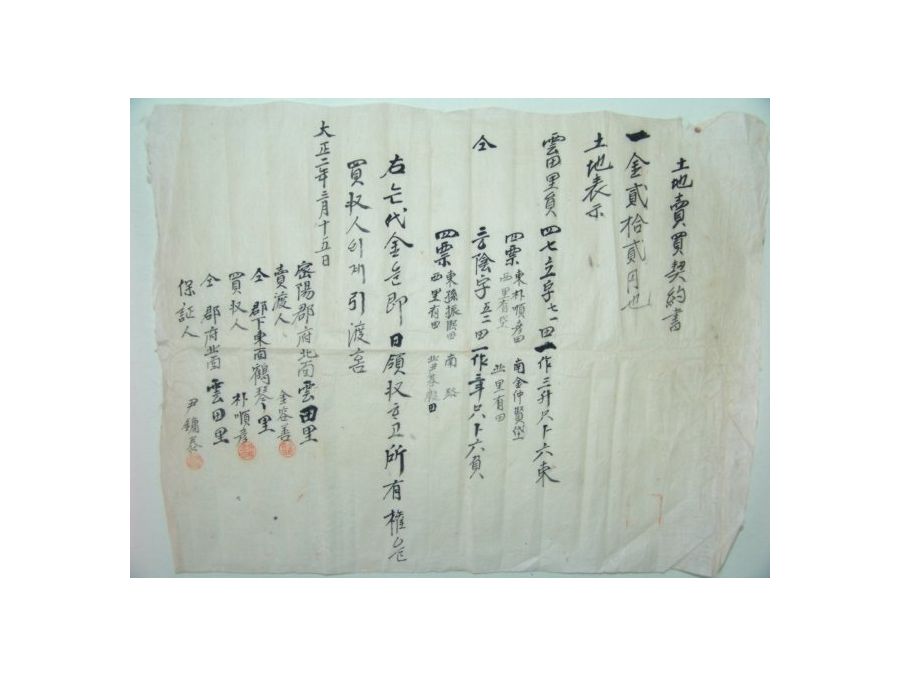 土地賣買契約書
一金貳拾貳円也
土地表示
雲田里員 四七 田 一作三升只卜六東
四票 東朴順彦田 南金仲賢垈
西里有垈 北里有田
仝 陰字五三田 一作 只卜六負
四票 東孫振 田 南路
西里有田 北尹 田
右 代金 即日領収 所有權
買収人 引渡
大正二年三月十五日
密陽郡府北面雲田里
賣渡人 金容善
仝郡下東面鶴琴里
買収人 朴順彦
仝郡府北面雲田里
保証人 尹鏞